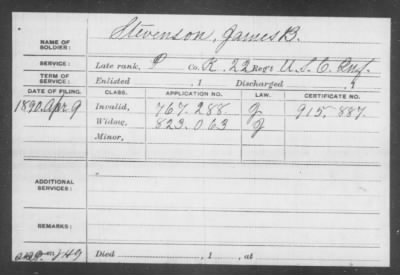 NAME OF SOLDIER: Stevenson, James B.
SERVICE: Late rank, P Co. K, 22 Reg't U.S.C. Inf.
TERM OF SERVICE: Enlisted , 1 Discharged , 1
DATE OF FILING. CLASS. APPLICATION NO. LAW. CERTIFICATE NO.
1890 Apr 9 Invalid, 767.288 G 915.887.
Widow, 823.063 G
Minor,
ADDITIONAL SERVICES:
REMARKS:
Died , 1 , at